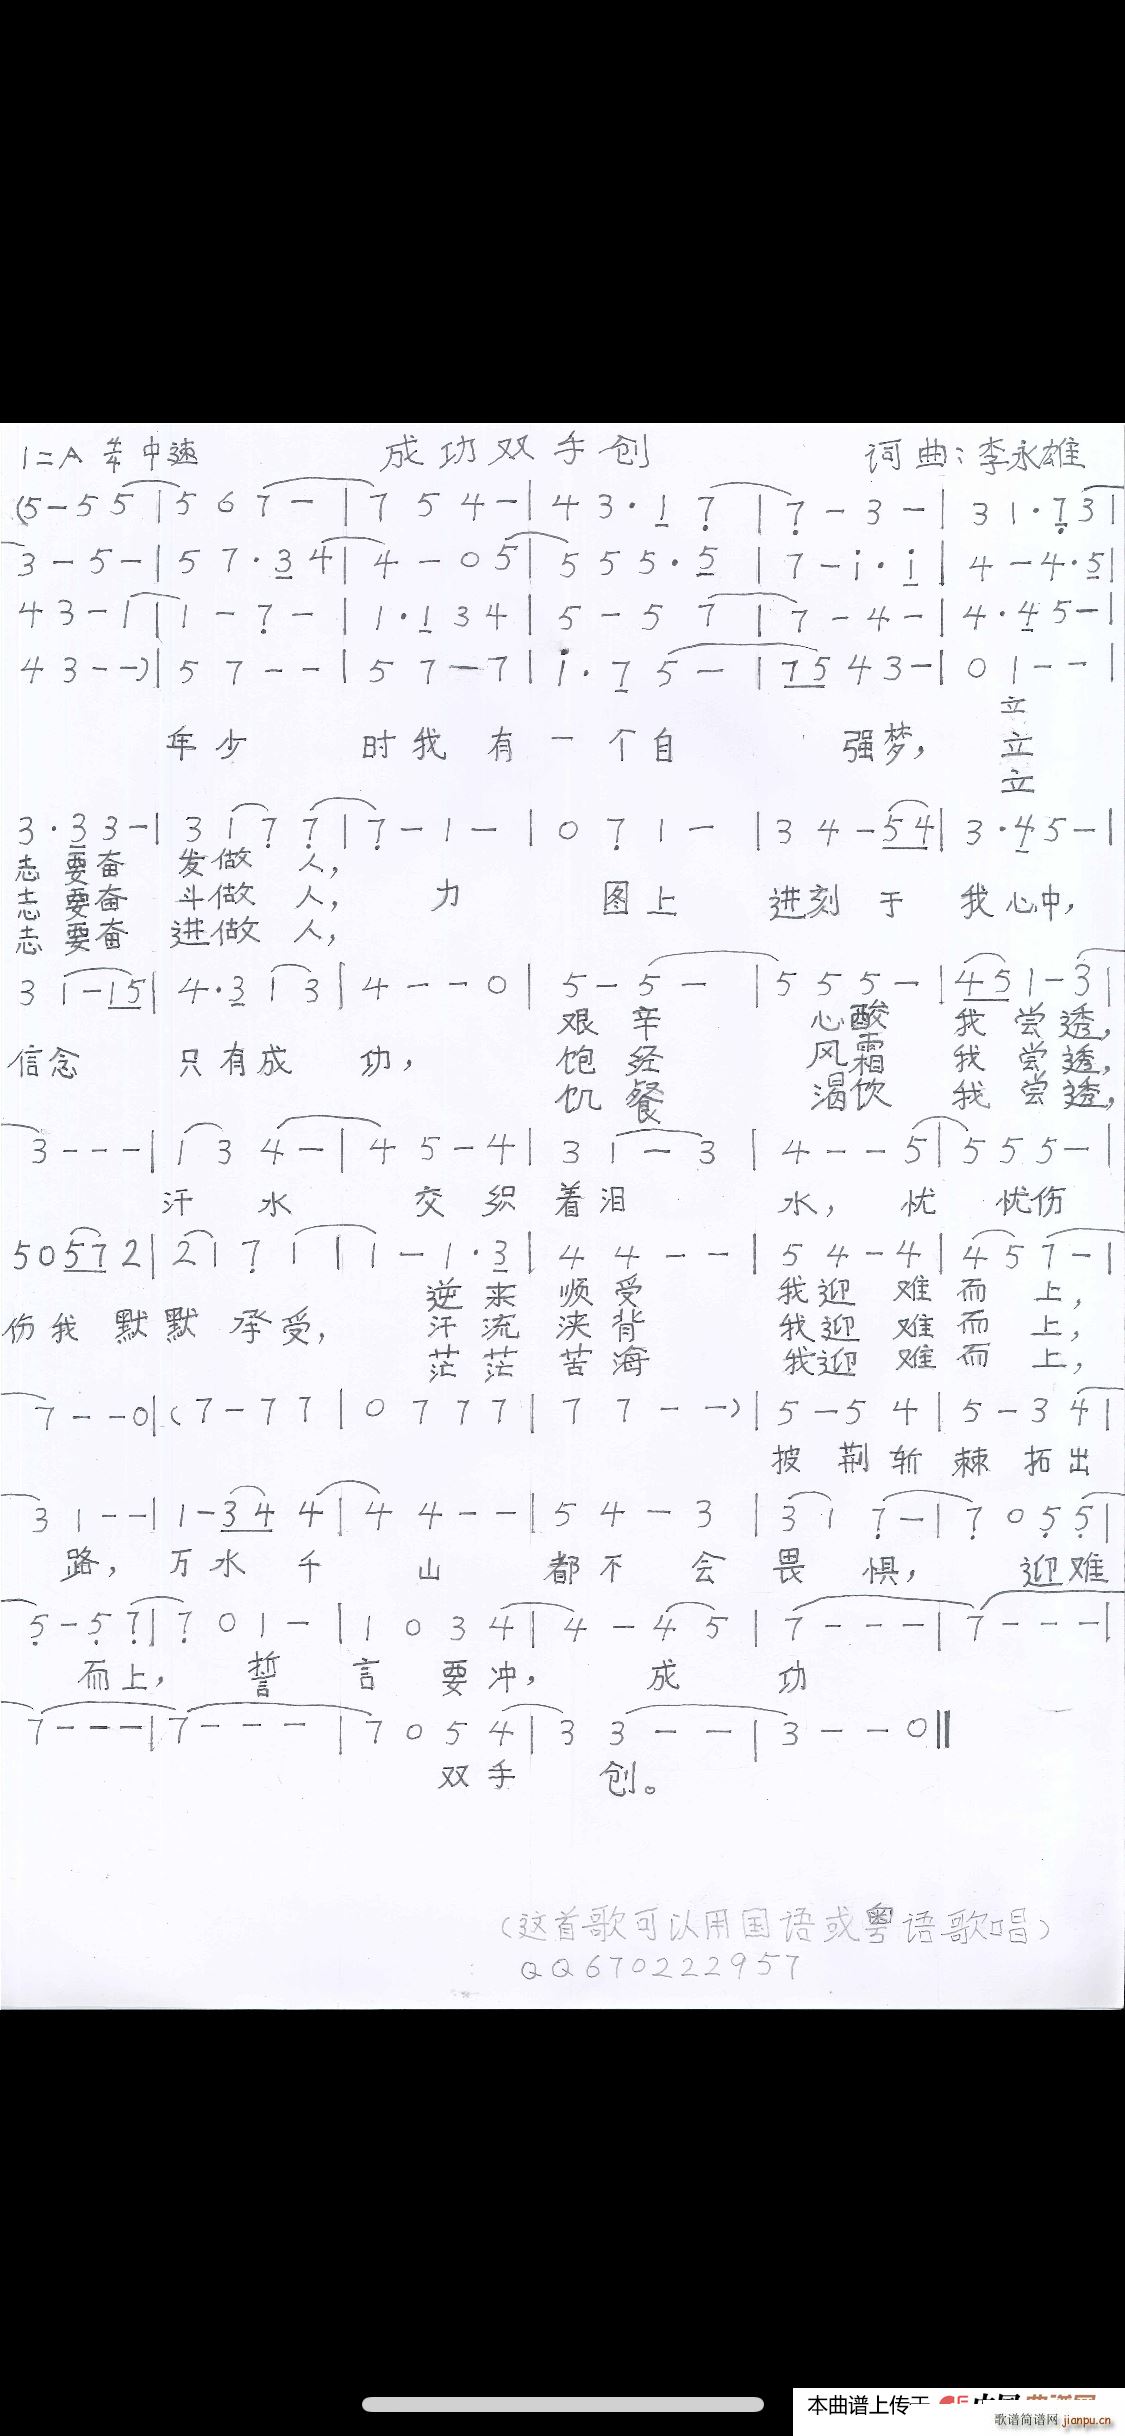 1=A 4/4 中速 成功双手创 词曲:李永雄
(5-55|567-|754-|43·17|7-3-|31·73|
3-5-|57·34|4-05|555·5|7-i·i|4-4·5|
43-1|1-7-|1·134|5-57|7-4-|4·45-|
43--)|57--|57-7|i·75-|7543-|01--|
立
年少 时我有一个自 强梦, 立
立
3·33-|3177|7-1-|071-|34-54|3·45-|
志要奋 发做 人,
志要奋 斗做 人, 力 图上 进刻于 我心中,
志要奋 进做 人,
31-15|4·313|4--0|5-5-|555-|451-3|
艰辛 心酸 我尝透,
信念 只有成 功, 饱经 风霜 我尝透,
饥餐 渴饮 我尝透,
3---|134-|45-4|31-3|4--5|555-|
汗水 交织着泪 水, 忧 忧伤
50572|2171|1-1·3|44--|54-4|457-|
逆来顺受 我迎难而上,
伤我默默承受, 汗流浃背 我迎难而上,
茫茫苦海 我迎难而上,
7--0|(7-77|0777|77--)|5-54|5-34|
披荆斩棘拓出
31--|1-344|44--|54-3|317-|7055|
路, 万水千 山 都不会畏 惧, 迎难
5-57|701-|1034|4-45|7---|7---|
而上, 誓 言要冲, 成 功
7---|7---|7054|33--|3--0||
双手 创。
(这首歌可以用国语或粤语歌唱)
QQ670222957
本曲谱上传于
歌谱简谱网 jianpu.cn